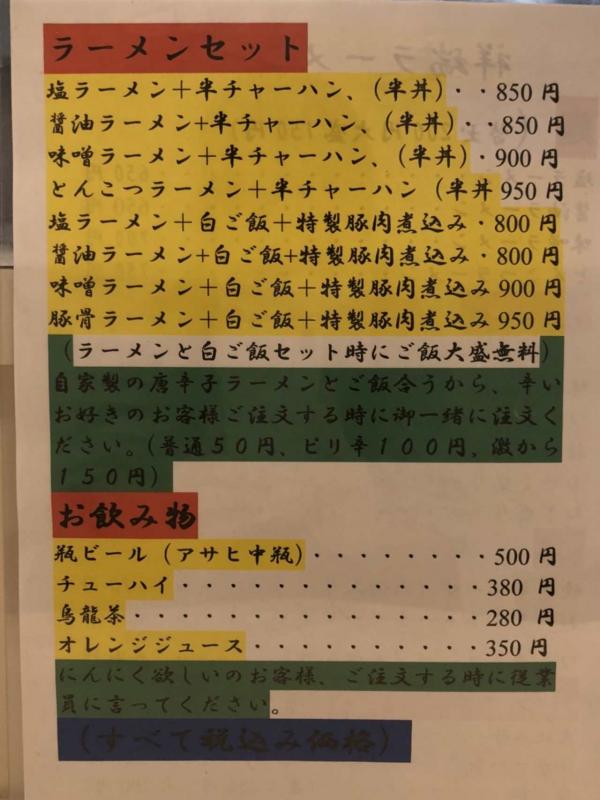 ラーメンセット
塩ラーメン＋半チャーハン、（半丼）・・850 円
醤油ラーメン+半チャーハン、（半丼）・・850 円
味噌ラーメン＋半チャーハン、（半丼）・900 円
とんこつラーメン＋半チャーハン（半丼 950 円
塩ラーメン＋白ご飯＋特製豚肉煮込み・800 円
醤油ラーメン+白ご飯+特製豚肉煮込み・800 円
味噌ラーメン＋白ご飯＋特製豚肉煮込み 900 円
豚骨ラーメン＋白ご飯＋特製豚肉煮込み 950 円
（ラーメンと白ご飯セット時にご飯大盛無料）
自家製の唐辛子ラーメンとご飯合うから、辛い
お好きのお客様ご注文する時に御一緒に注文く
ださい。（普通５０円、ピリ辛１００円、激から
１５０円）
お飲み物
瓶ビール（アサヒ中瓶）・・・・・・・・500 円
チューハイ・・・・・・・・・・・・・・380 円
烏龍茶・・・・・・・・・・・・・・・・280 円
オレンジジュース・・・・・・・・・・350 円
にんにく欲しいのお客様、ご注文する時に従業
員に言ってください。
（すべて税込み価格）